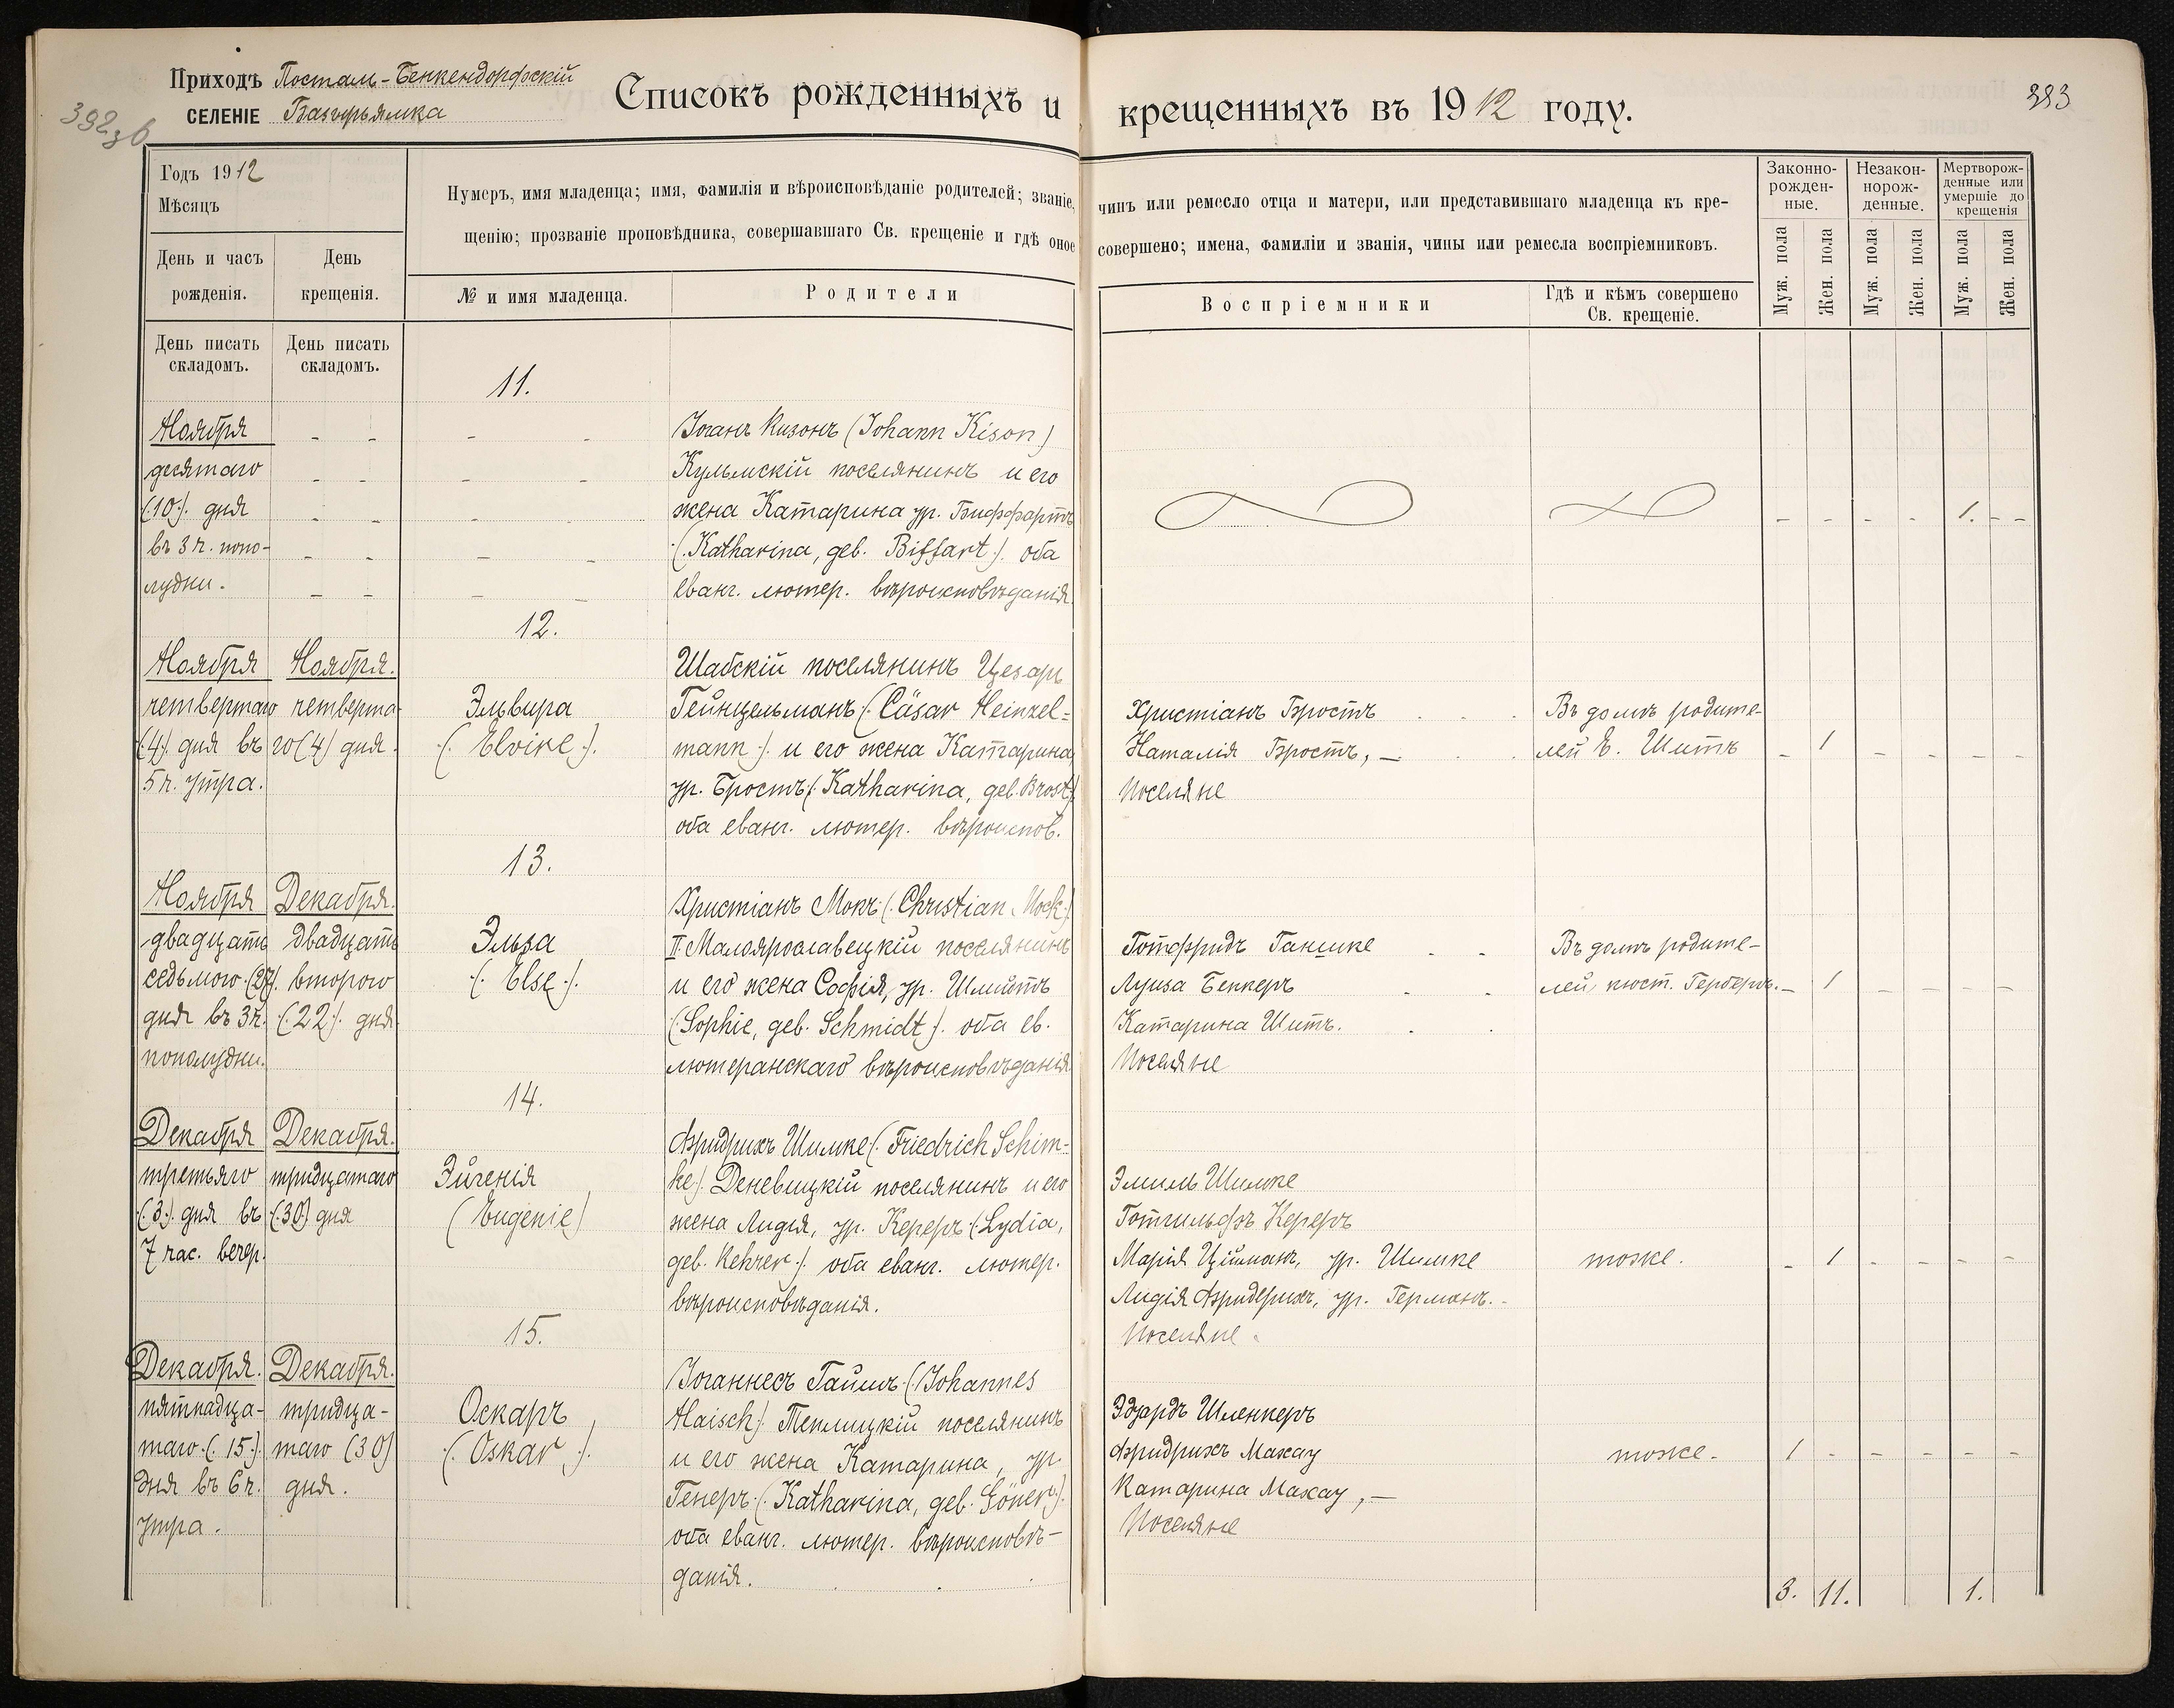 Приходъ Посталь-Бенкендорфскій
СЕЛЕНІЕ
Списокъ рожденныхъ и крещенныхъ въ 1912 году.
383
Годъ 1912
Мѣсяцъ
Нумеръ, имя младенца; имя, фамилія и вѣроисповѣданіе родителей; званіе, чинъ или ремесло отца и матери, или представившаго младенца къ кре-
щенію; прозваніе проповѣдника, совершавшаго Св. крещеніе и гдѣ оное совершено; имена, фамиліи и званія, чины или ремесла воспріемниковъ.
День и часъ
рожденія.
День
крещенія.
№ и имя младенца.
Родители
Воспріемники
Гдѣ и кѣмъ совершено
Св. крещеніе.
Законно-
рожден-
ные.
Незакон-
норож-
денные.
Мертворож-
денные или
умершіе до
крещенія
Муж. пола
Жен. пола
Муж. пола
Жен. пола
Муж. пола
Жен. пола
День писать
складомъ.
День писать
складомъ.
11.
Ноября
десятаго
(10) дня
въ 3 ч. попо-
лудни.
Іоганъ Кизонъ (Johann Kison)
Кульмскій поселянинъ и его
жена Катарина ур. Биффартъ
(Katharina, geb. Biffart). оба
еванг. лютер. вѣроисповѣданія
1.
12.
Ноября
четвертаго
(4) дня въ
5 ч. утра.
Ноября.
четверта-
го (4) дня.
Эльвира
(Elvire).
Шабскій поселянинъ Цезарь
Гейнцельманъ (Cäsar Heinzel=
mann). и его жена Катарина
ур. Бростъ (Katharina, geb. Brost)
оба еванг. лютер. вѣроиспов.
Христіанъ Бростъ
Наталія Бростъ, —
Поселяне
Въ домѣ родите-
лей Е. Шитъ
1
13.
Ноября
двадцать
седьмого (27).
дня въ 3 ч.
пополудни.
Декабря.
двадцать
второго
(22). дня
Эльза
(Else).
Христіанъ Мокъ (Christian Mock)
II. Малоярославецкій поселянинъ
и его жена Софія, ур. Шмидтъ
(Sophie, geb. Schmidt). оба ев.
лютеранскаго вѣроисповѣданія
Готфридъ Ганшке
Луиза Беккеръ
Катарина Шитъ.
Поселяне
Въ домѣ родите-
лей, кюст. Герберъ.
1
14.
Декабря
третьяго
(3). дня въ
7 час. вечер.
Декабря.
тридцатаго
(30) дня
Эйгенія
(Eugenie)
Фридрихъ Шимке (Friedrich Schim-
ke). Деневицкій поселянинъ и его
жена Лидія, ур. Кереръ (Lydia,
geb. Kehrer). оба еванг. лютер.
вѣроисповѣданія.
Эмиль Шимке
Готгильфъ Кереръ
Марія Циманъ, ур. Шимке
Лидія Фридерихъ, ур. Германъ.
Поселяне.
тоже.
1
15.
Декабря.
пятнадца-
таго (15).
дня въ 6 ч.
утра.
Декабря.
тридца-
таго (30)
дня.
Оскаръ
(Oskar).
Іоганнесъ Гайшъ (Johannes
Haisch). Теплицкій поселянинъ
и его жена Катарина, ур.
Генеръ (Katharina, geb. Göner).
оба еванг. лютер. вѣроисповѣ-
данія.
Эдуардъ Шленкеръ
Фридрихъ Махау
Катарина Махау, —
Поселяне
тоже.
1
3. 11. 1.